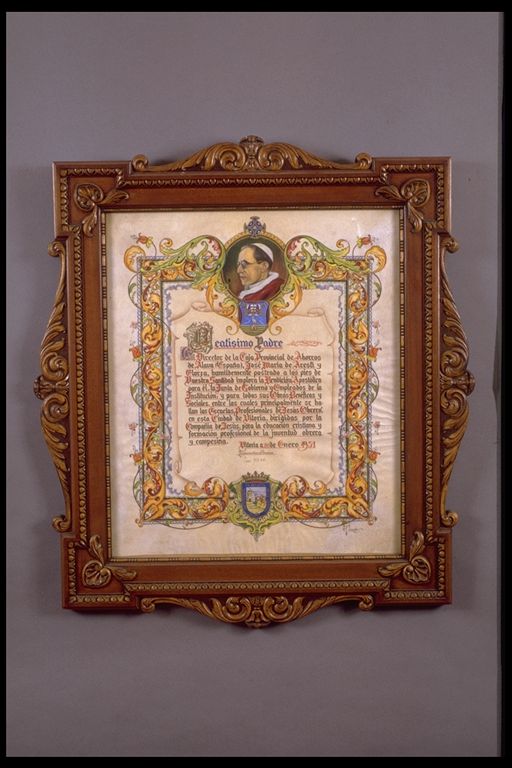 Beatisimo Padre
El Director de la Caja Provincial de Ahorros
de Alava (España), José María de Aresti y
Elorza, humildemente postrado a los pies de
Vuestra Santidad implora la Bendición Apostólica
para él, la Junta de Gobierno y Empleados de la
Institución, y para todas sus Obras Benéficas y
Sociales, entre las cuales principalmente se ha
llan las Escuelas Profesionales de Jesús Obrero,
en esta Ciudad de Vitoria, dirigidas por la
Compañía de Jesús, para la educación cristiana y
formación profesional de la juventud obrera
y campesina.
Vitoria a de Enero 1951